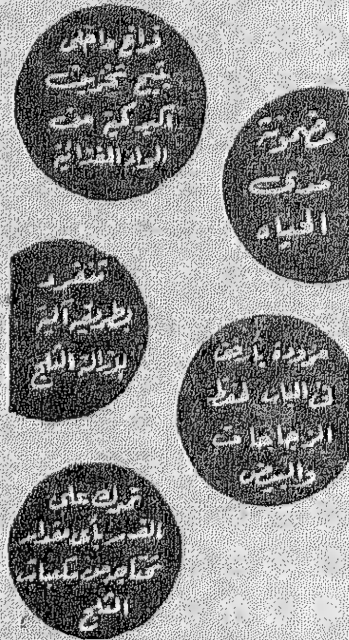 فراغ داخلى
يتيح تخزين
أكبر كمية من
المواد الغذائية
مضمونة
مدى
الحياه
تنفرد
بطريقة آلية
لإزالة الثلج
مزودة بأرفف
فى الباب لحفظ
الزجاجات
والبيض
تمدك على
الفور بأى مقدار
تحتاجه من مكعبات
الثلج